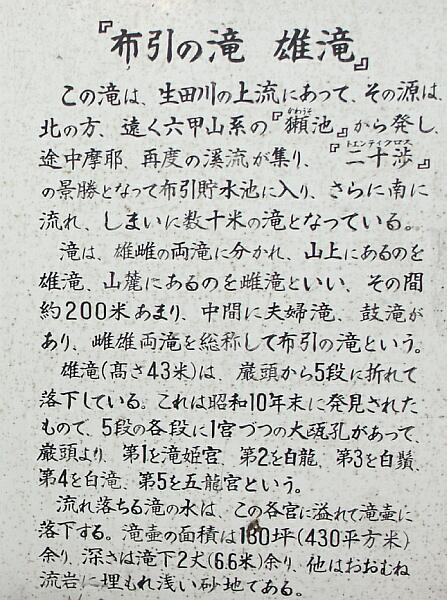 『布引の滝 雄滝』
この滝は、生田川の上流にあって、その源は、
北の方、遠く六甲山系の『獺池』から発し、
途中摩耶、再度の溪流が集り、『二十渉』
の景勝となって布引貯水池に入り、さらに南に
流れ、しまいに数十米の滝となっている。
滝は、雄雌の両滝に分かれ、山上にあるのを
雄滝、山麓にあるのを雌滝といい、その間
約200米あまり、中間に夫婦滝、鼓滝が
あり、雌雄両滝を総称して布引の滝という。
雄滝(高さ43米)は、巌頭から5段に折れて
落下している。これは昭和10年末に発見された
もので、5段の各段に1宮づつの大甌孔があって、
巌頭より、第1を滝姫宮、第2を白龍、第3を白鬚、
第4を白滝、第5を五龍宮という。
流れ落ちる滝の水は、この各宮に溢れて滝壷に
落下する。滝壷の面積は130坪(430平方米)
余り、深さは滝下2丈(6.6米)余り、他はおおむね
流岩に埋もれ浅い砂地である。